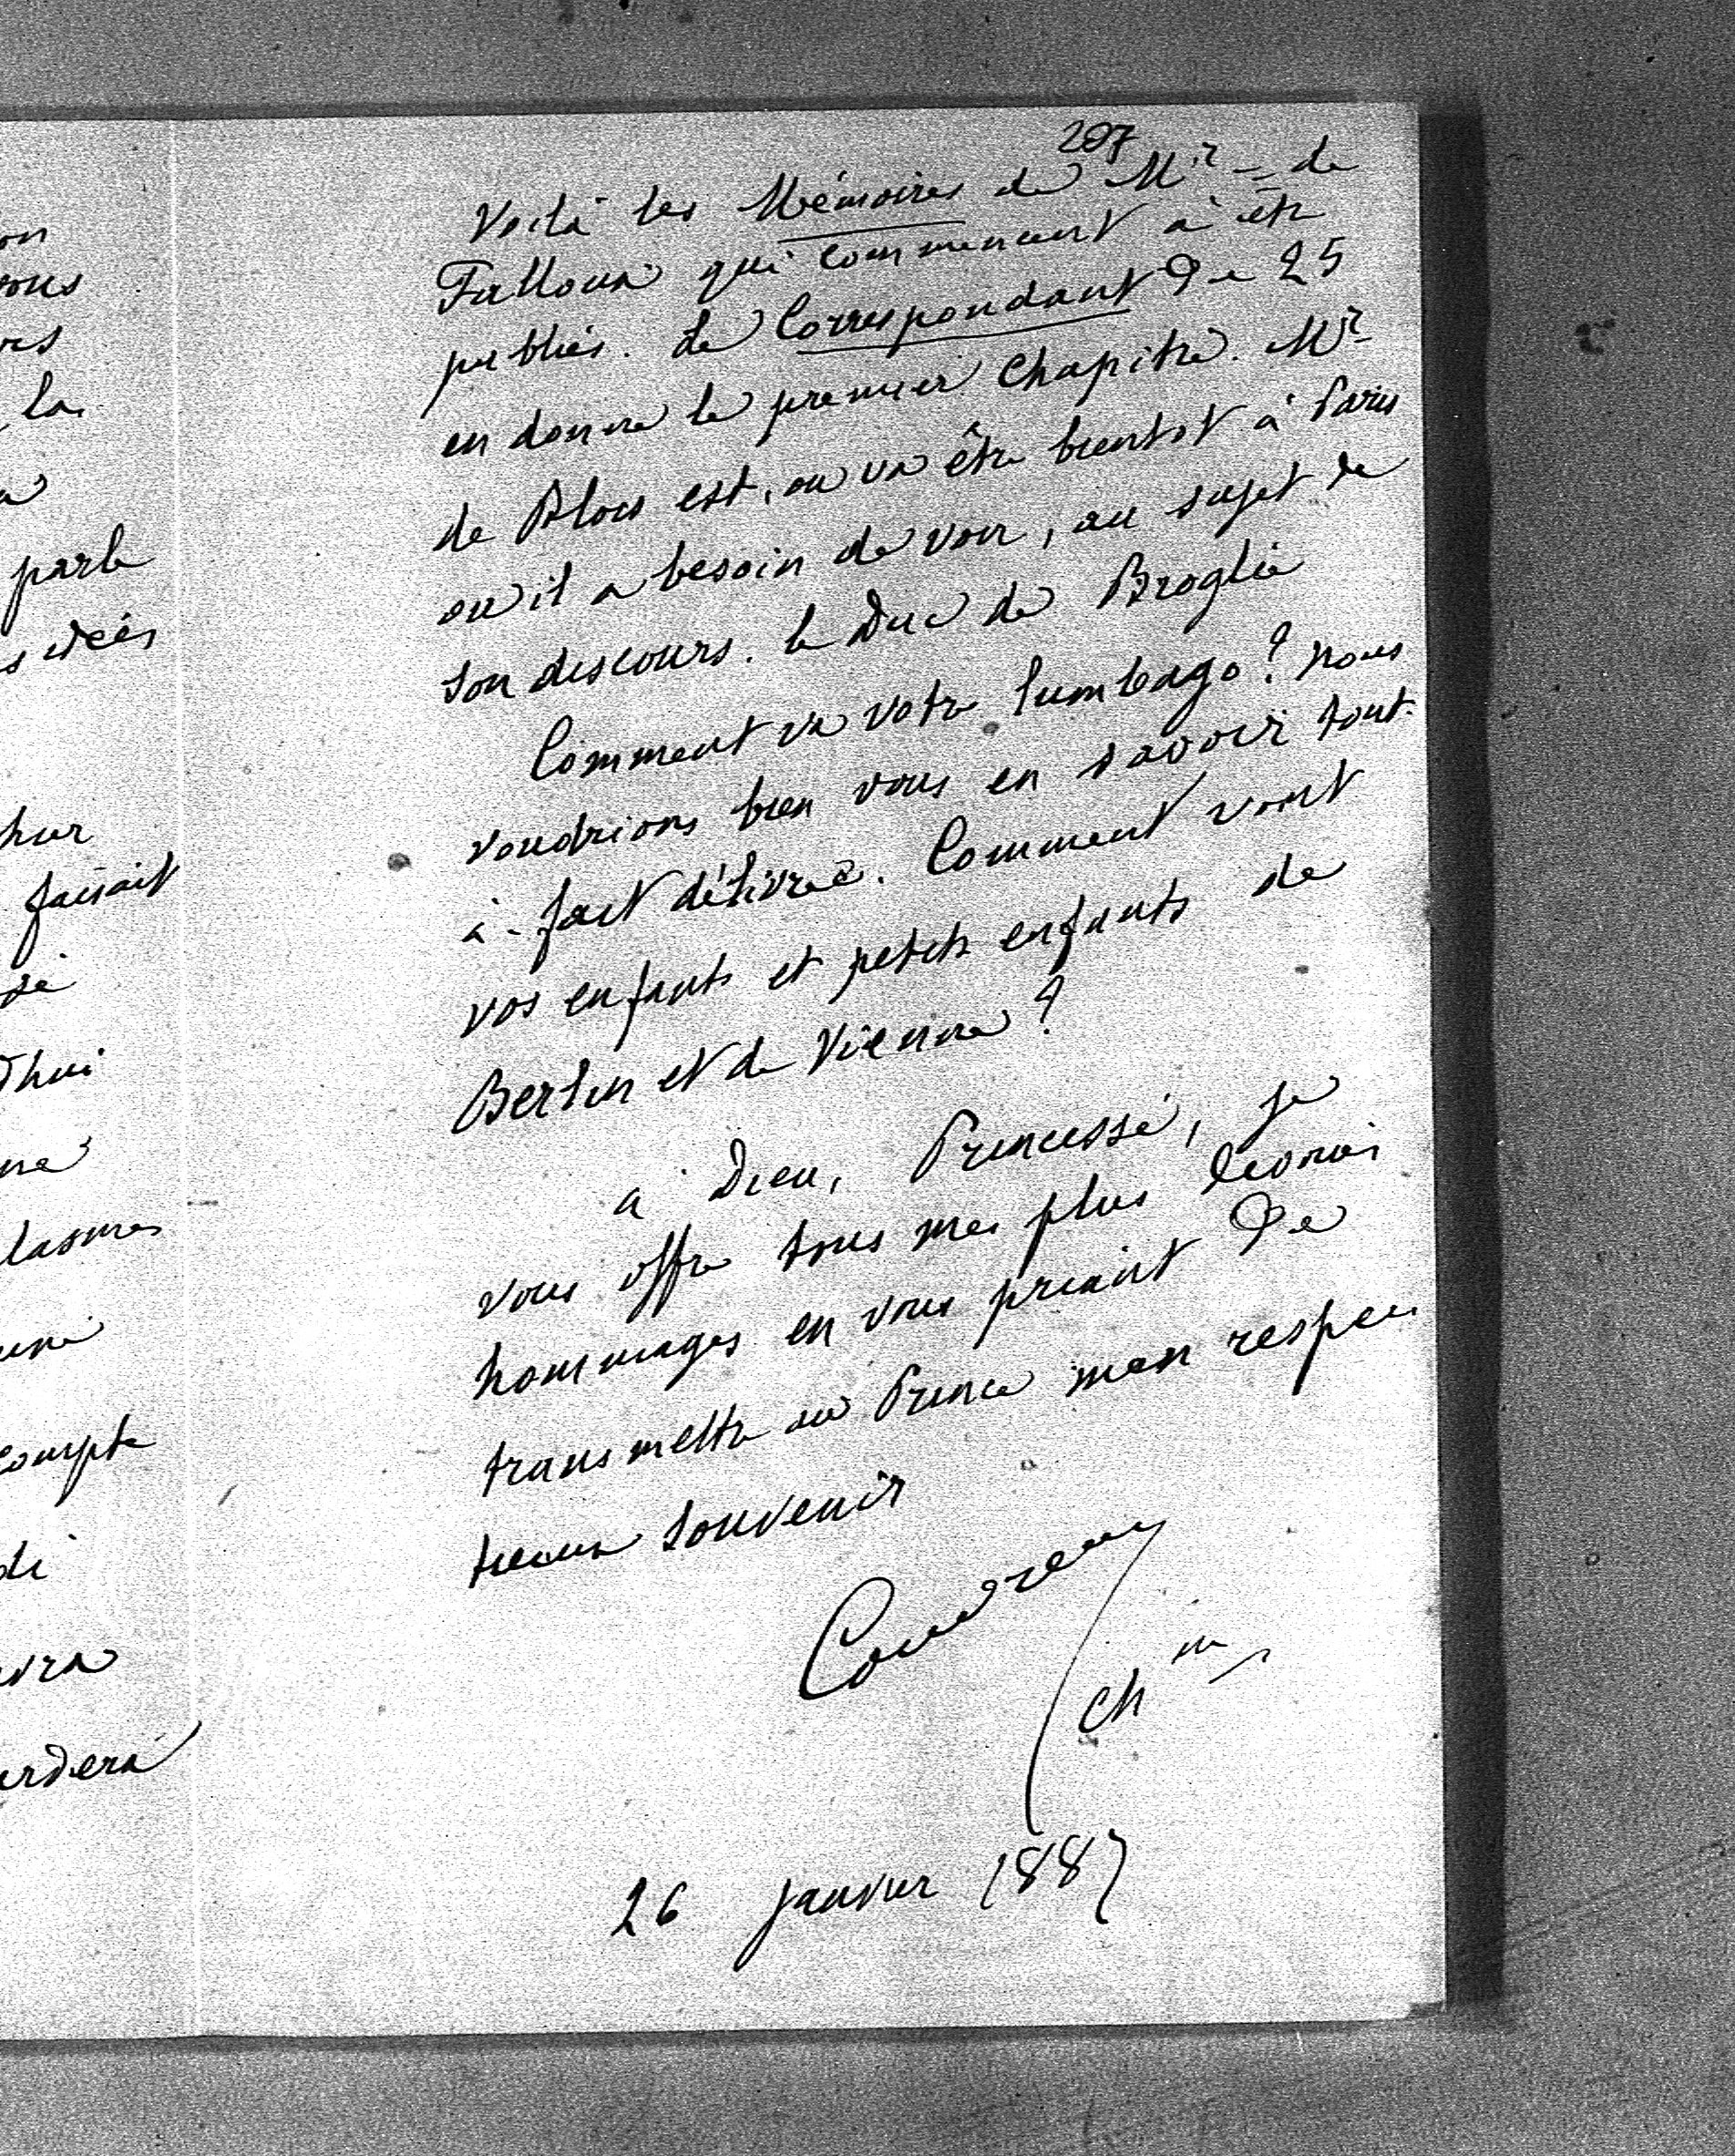 on
vous
res
la
a
parle
s idées
hur
faisait
sé
d'hui
une
lasmes
une
compte
di
vra
ardera
207
Voilà les Mémoires de Mr de
Falloux qui commencent à êtr
publiés. Le Correspondant De 25
en donne le premier Chapitre. Mr
de Blois est, ou va être bientôt à Paris
ou il a besoin de voir, au sujet de
son discours. le Duc de Broglie
Comment va votre lumbago? nous
voudrions bien vous en savoir tout-
à-fait délivrée. Comment vont
vos enfants et petits enfants de
Berlin et de Vienne?
a Dieu, Princesse, je
vous offre tous mes plus
hommages en vous priant De
transmettre au Prince mon respec
tueux souvenir
Coudreau
Chne
26 janvier 1887